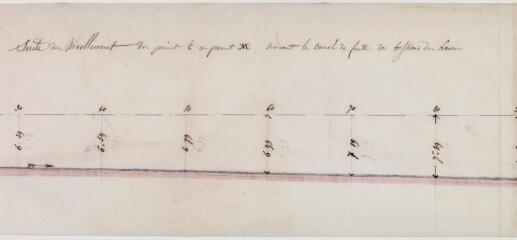 Suite du Nivellement du point E au point M suivant le canal de fuite des bassins du Lavoir
30 40 50 60 70 80
6.59 6.59 6.99 6.99 7.19 7.59